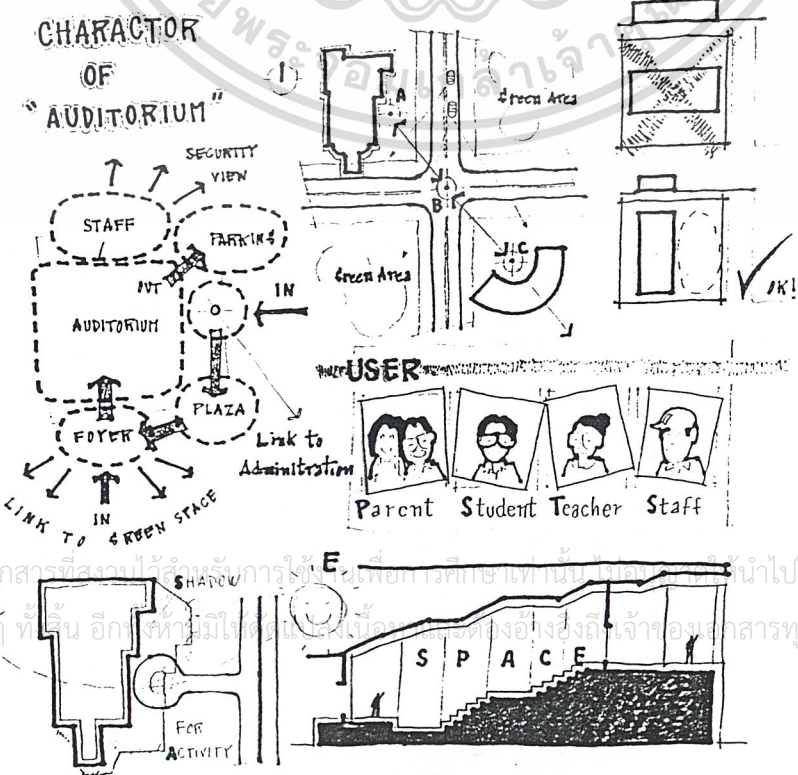 CHARACTOR
OF
"AUDITORIUM"
SECURITY
VIEW
STAFF
PARKING
OUT
IN
AUDITORIUM
PLAZA
FOYER
Link to
Adminitration
LINK TO GREEN STACE
IN
1
A
Green Area
B
C
Green Area
OK!
USER
Parent Student Teacher Staff
SHADOW
FOR
ACTIVITY
E
SPACE